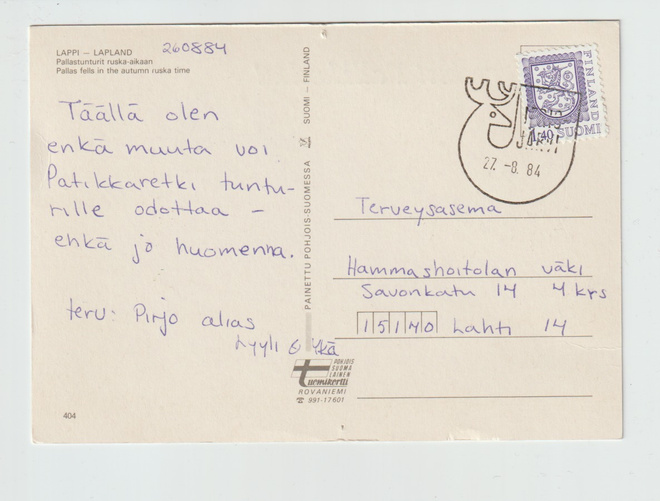 LAPPI – LAPLAND
Pallastunturit ruska-aikaan
Pallas fells in the autumn ruska time
260884
Täällä olen
enkä muuta voi
Patikkaretki tuntu-
rille odottaa –
ehkä jo huomenna.
terv: Pirjo alias
Lyyli &
404
PAINETTU POHJOIS-SUOMESSA
SUOMI – FINLAND
POHJOIS
SUOMA
LAINEN
Tuomikortti
ROVANIEMI
☎ 991-17601
FINLAND
SUOMI
1,40
JÄRVI
27. -8. 84
Terveysasema
Hammashoitolan väki
Savonkatu 14 4 krs
15140 Lahti 14